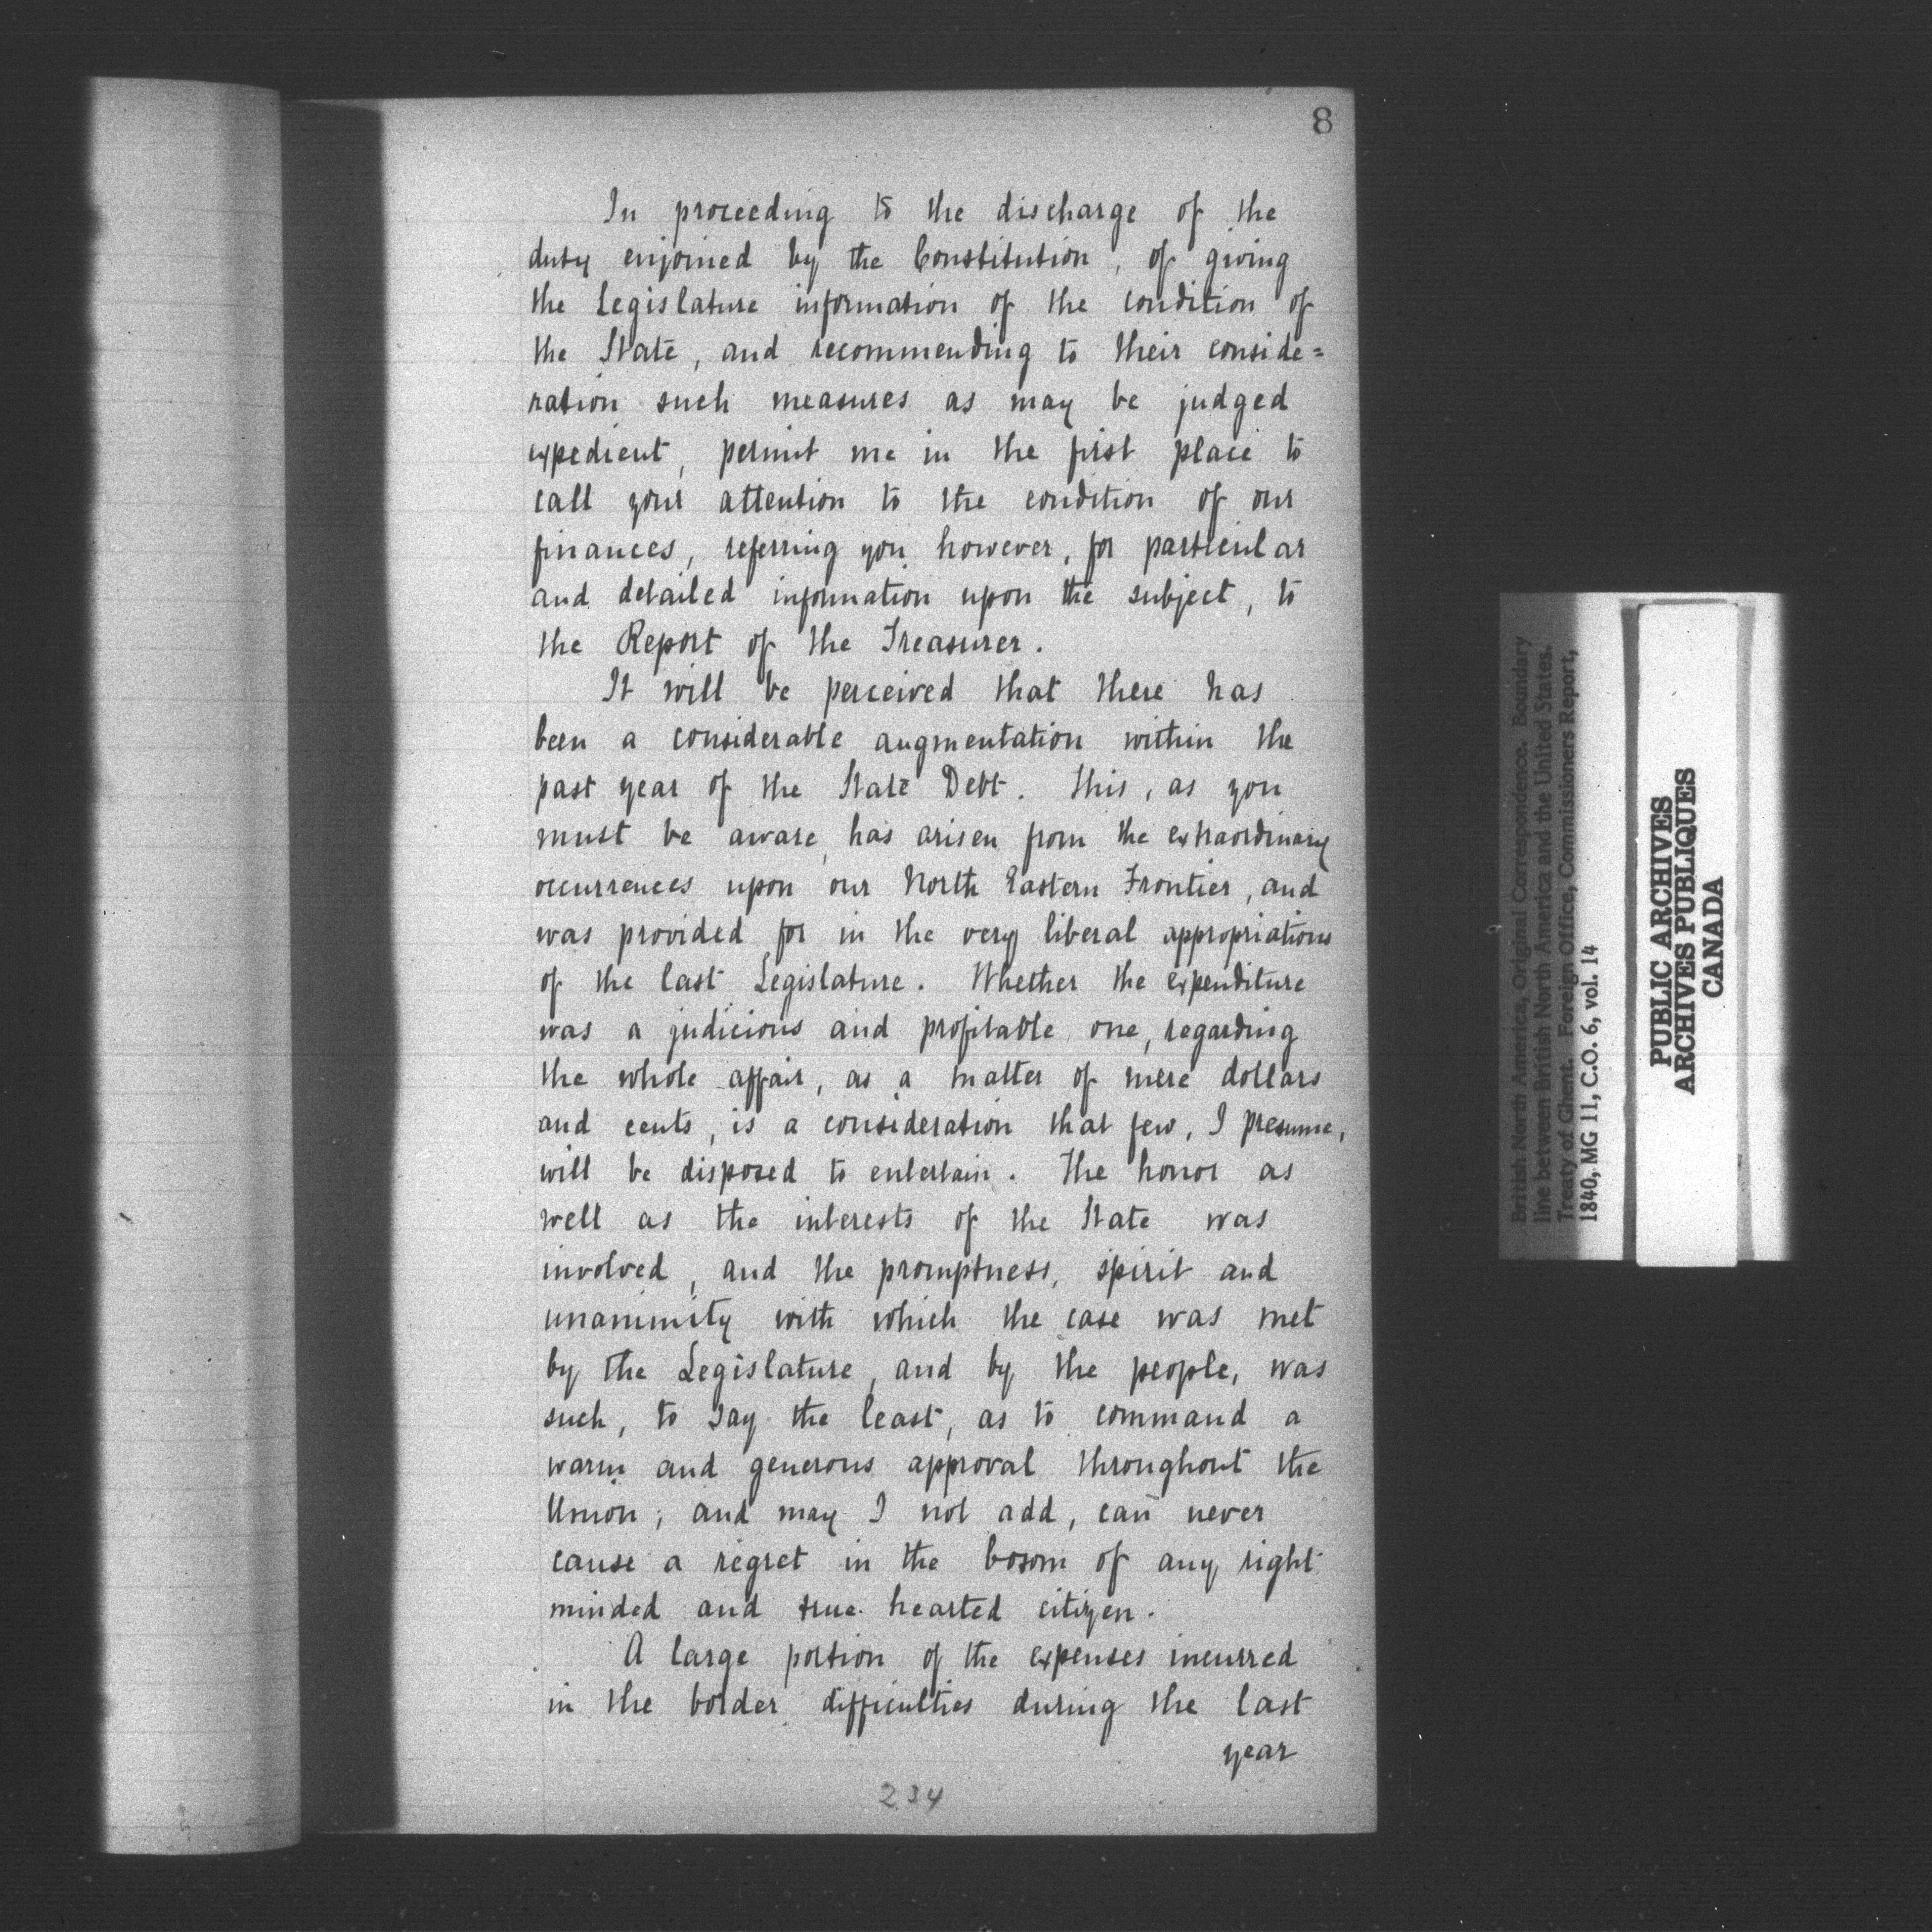 8
In proceeding to the discharge of the
duty enjoined by the Constitution, of giving
the Legislature information of the condition of
the State, and recommending to their conside=
ration such measures as may be judged
expedient, permit me in the first place to
call your attention to the condition of our
finances, referring you however, for particular
and detailed information upon the subject, to
the Report of the Treasurer.
It will be perceived that there has
been a considerable augmentation within the
past year of the State Debt. This, as you
must be aware, has arisen from the extraordinary
occurrences upon our North Eastern Frontier, and
was provided for in the very liberal appropriations
of the last Legislature. Whether the expenditure
was a judicious and profitable one, regarding
the whole affair, as a matter of mere dollars
and cents, is a consideration that few, I presume,
will be disposed to entertain. The honor as
well as the interests of the State was
involved, and the promptness, spirit and
unanimity with which the case was met
by the Legislature, and by the people, was
such, to say the least, as to command a
warm and generous approval throughout the
Union; and may I not add, can never
cause a regret in the bosom of any right
minded and true hearted citizen.
A large portion of the expenses incurred
in the border difficulties during the last
year
234
British North America, Original Correspondence. Boundary
line between British North America and the United States.
Treaty of Ghent. Foreign Office, Commissioners Report,
1840, MG 11, C.O. 6, vol. 14
PUBLIC ARCHIVES
ARCHIVES PUBLIQUES
CANADA